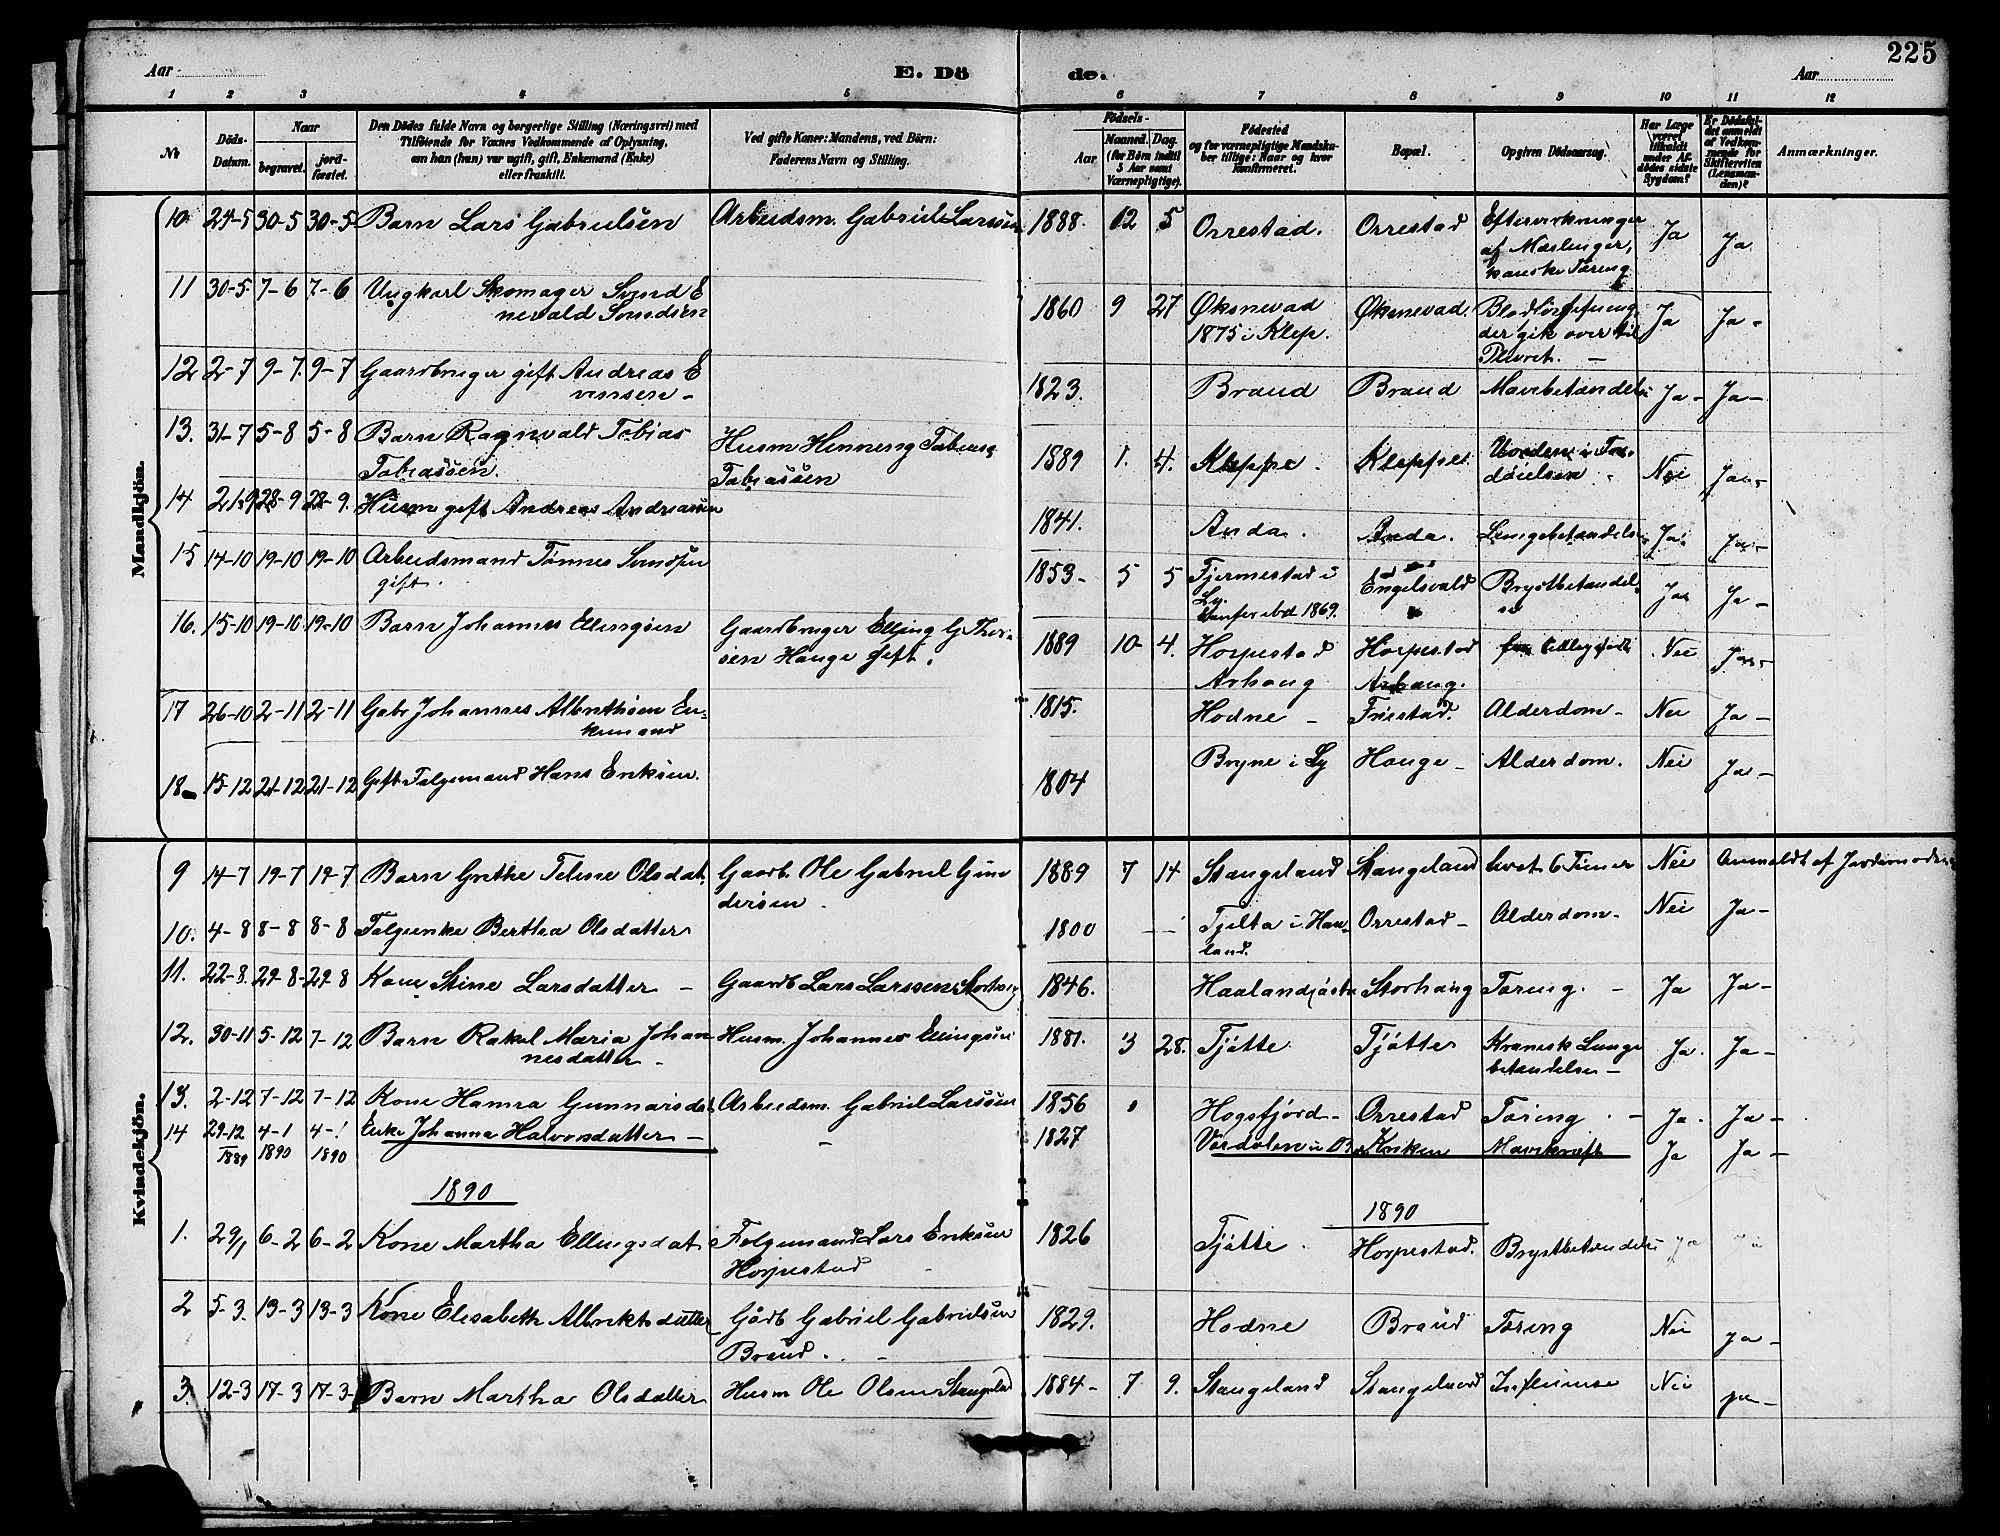 225
Aar
E. Dö
de.
Aar
1 2 3 4 5 6 7 8 9 10 11 12
No
Döds-
Datum.
Naar
begravet.
jord-
fæstet.
Den Dödes fulde Navn og borgerlige Stilling (Næringsvei) med
Tilföiende for Voxnes Vedkommende af Oplysning,
om han (hun) var ugift, gift, Enkemand (Enke)
eller fraskilt.
Ved gifte Koner: Mandens, ved Börn:
Faderens Navn og Stilling.
Födsels-
Aar
Maaned. Dag.
(for Börn indtil
5 Aar samt
Værnepligtige).
Födested
og for værnepligtige Mandsku-
ber tillige: Naar og hvor
Konfirmeret.
Bopæl.
Opgiven Dödsaarsag.
Har Læge
været
tilkaldt
under Af-
dödes sidste
Sygdom?
Er Dödsfal-
det anmeldt
af Vedkom-
mende for
Skifteretten
(Lensman-
den)?
Anmærkninger.
Mandkjön.
10. 24-5 30-5 30-5 Barn Lars Gabrielsen Arbeidsm. Gabriel Larssen 1888. 12 5 Orrestad. Orrestad Eftervirkninger Ja Ja
af Mæslinger,
kanske Tæring
11 30-5 7-6 7-6 Ungkarl Skomager Svend E 1860 9 27 Øksnevad Øksnevad. Blodforgiftning Ja Ja -
1875 i Klep. der gik over til
Pleurit. -
12 2-7 9-7. 9-7 Gaardbruger gift Andreas E 1823. Braud Braud Mavebetændelse Ja - Ja -
vensen -
13. 31-7 5-8 5-8 Barn Ragnvald Tobias Husm Henneng Tobias 1889 1. 4. Kleppe. Kleppe Nei Ja -
Tobiassen. Tobiassen
14 21-9 28-9 28-9. Husm gift Andreas Andreassen 1841. Anda. Anda. Lungebetændelse Ja Ja -
15 14-10 19-10 19-10 Arbeidsmand Tønnes Svendsen 1853- 5 5 Fjermestad i Engelsvold Brystbetændel Ja Ja -
gift. Ly. se
Confer ibd 1869.
16. 15-10 19-10 19-10 Barn Johannes Ellingsen Gaardbruger Elling G Thor- 1889 10 4. Horpestad Horpestad Nei Ja -
sen Hauge gift. Arhaug Arhaug.
17 26-10 2-11 2-11 Gabr Johannes Albrethsen En- 1815. Hodne - Friestad. Alderdom - Nei Ja -
kemand
18 - 15-12 21-12 21-12 Gift Folgemand Hans Eriksen. 1804 Bryne i Ly Hauge - Alderdom. Nei Ja -
Kvindekjön.
9 14-7 19-7 19-7 Barn Grethe Teline Olsdat. Gaardb. Ole Gabriel Gun 1889 7 14 Stangeland Stangeland levet 6 Timer Nei Anmeldt af Jordemoderen
dersen
10. 4-8 8-8 8-8 Folgeenke Bertha Olsdatter 1800 Tjelta i Haa- Orrestad - Alderdom - Nei Ja -
land.
11. 22-8. 29-8- 29-8 Kone Stine Larsdatter - Gaardb Lars Larssen Storhaug 1846. Haaland Storhaug Tæring. - Ja Ja -
12. 30-11 5-12 7-12 Barn Rakel Maria Johan Husm. Johannes Ellingsen 1881. 3 28. Tjøtte Tjøtte Kronisk Lunge Ja. Ja -
nesdatter - betændelse -
13. 2-12 7-12 7-12 Kone Hanna Gunnarsdat. Arbeidsm. Gabriel Larssen 1856 Hogsfjord - Orrestad Tæring. - Ja. Ja -
14 29-12 4-1 4-1 Enke Johanna Halvorsdatter - 1827 Kriken Mavekræft Ja Ja -
1889 1890 1890
1890
1890
1. 29/1 6-2 6-2 Kone Martha Ellingsdat Folgemand Lars Eriksen 1826 Tjøtte. Horpestad. Brystbetændelse Ja
Horpestad
2 5-3. 13-3 13-3 Kone Elisabeth Albrektsdatter Gårdb Gabriel Gabrielsen 1829. Hodne Braud Tæring Nei Ja -
Braud. -
3. 12-3 17-3 17-3- Barn Martha Olsdatter Husm Ole Olsen Stangeland 1884- 7 9. Stangeland Stangeland Influense Nei Ja -